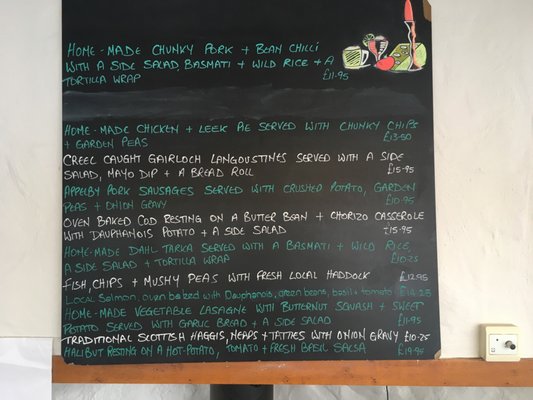 HOME-MADE CHUNKY PORK + BEAN CHILLI
WITH A SIDE SALAD, BASMATI + WILD RICE + A
TORTILLA WRAP £11-95
HOME-MADE CHICKEN + LEEK PIE SERVED WITH CHUNKY CHIPS
+ GARDEN PEAS £13-50
CREEL CAUGHT GAIRLOCH LANGOUSTINES SERVED WITH A SIDE
SALAD, MAYO DIP + A BREAD ROLL £15-95
APPELBY PORK SAUSAGES SERVED WITH CRUSHED POTATO, GARDEN
PEAS + ONION GRAVY £10-95
OVEN BAKED COD RESTING ON A BUTTER BEAN + CHORIZO CASSEROLE
WITH DAUPHANOIS POTATO + A SIDE SALAD £15-95
HOME-MADE DAHL TARKA SERVED WITH A BASMATI + WILD RICE,
A SIDE SALAD + TORTILLA WRAP £10-25
FISH, CHIPS + MUSHY PEAS WITH FRESH LOCAL HADDOCK £12-95
Local Salmon, oven baked with Dauphanois, green beans, basil + tomato £14-25
HOME-MADE VEGETABLE LASAGNE WITH BUTTERNUT SQUASH + SWEET
POTATO SERVED WITH GARLIC BREAD + A SIDE SALAD £11-95
TRADITIONAL SCOTTISH HAGGIS, NEAPS + TATTIES WITH ONION GRAVY £10-25
HALIBUT RESTING ON A HOT-POTATO, TOMATO + FRESH BASIL SALSA £19-95